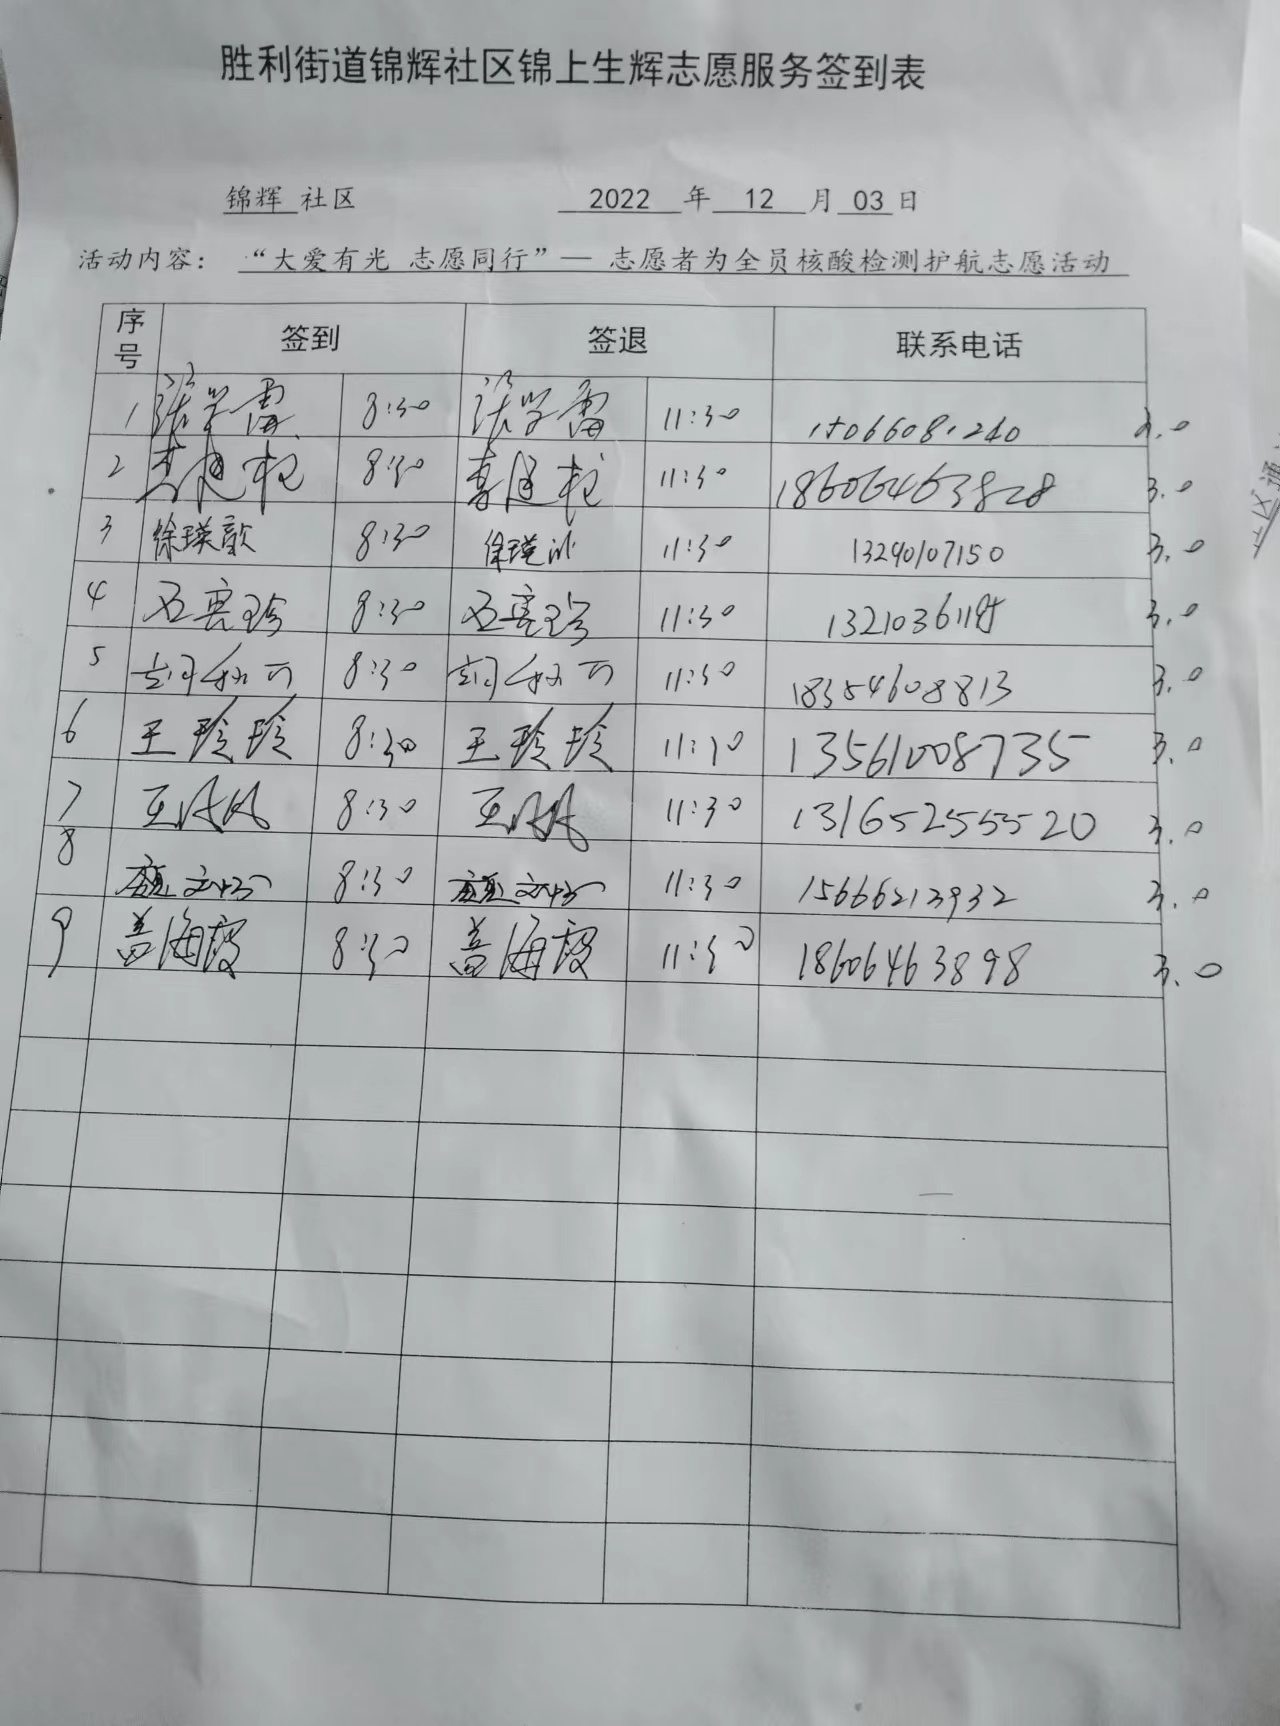 胜利街道锦辉社区锦上生辉志愿服务签到表
锦辉 社区 2022 年 12 月 03 日
活动内容： “大爱有光 志愿同行”— 志愿者为全员核酸检测护航志愿活动
序号 签到 签退 联系电话
1 张学雷 8:30 张学雷 11:30 15066081240 3.0
2 8:30 11:30 18606463828 3.0
3 徐瑛 8:30 徐瑛 11:30 13290107150 3.0
4 8:30 11:30 3.0
5 8:30 11:30 18354608813 3.0
6 王玲玲 8:30 王玲玲 11:30 13561008735 3.0
7 王 8:30 王 11:30 3.0
8 8:30 11:30 15666213932 3.0
9 盖海霞 8:30 盖海霞 11:30 18606463898 3.0